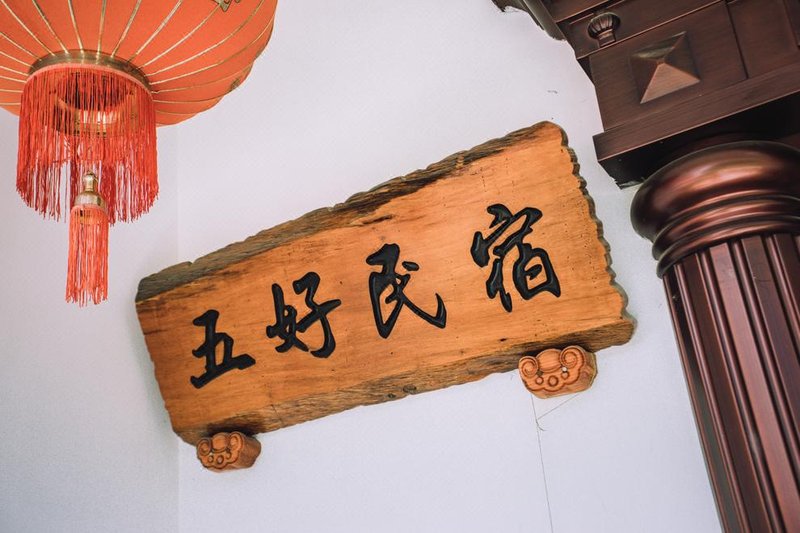 五好民宿